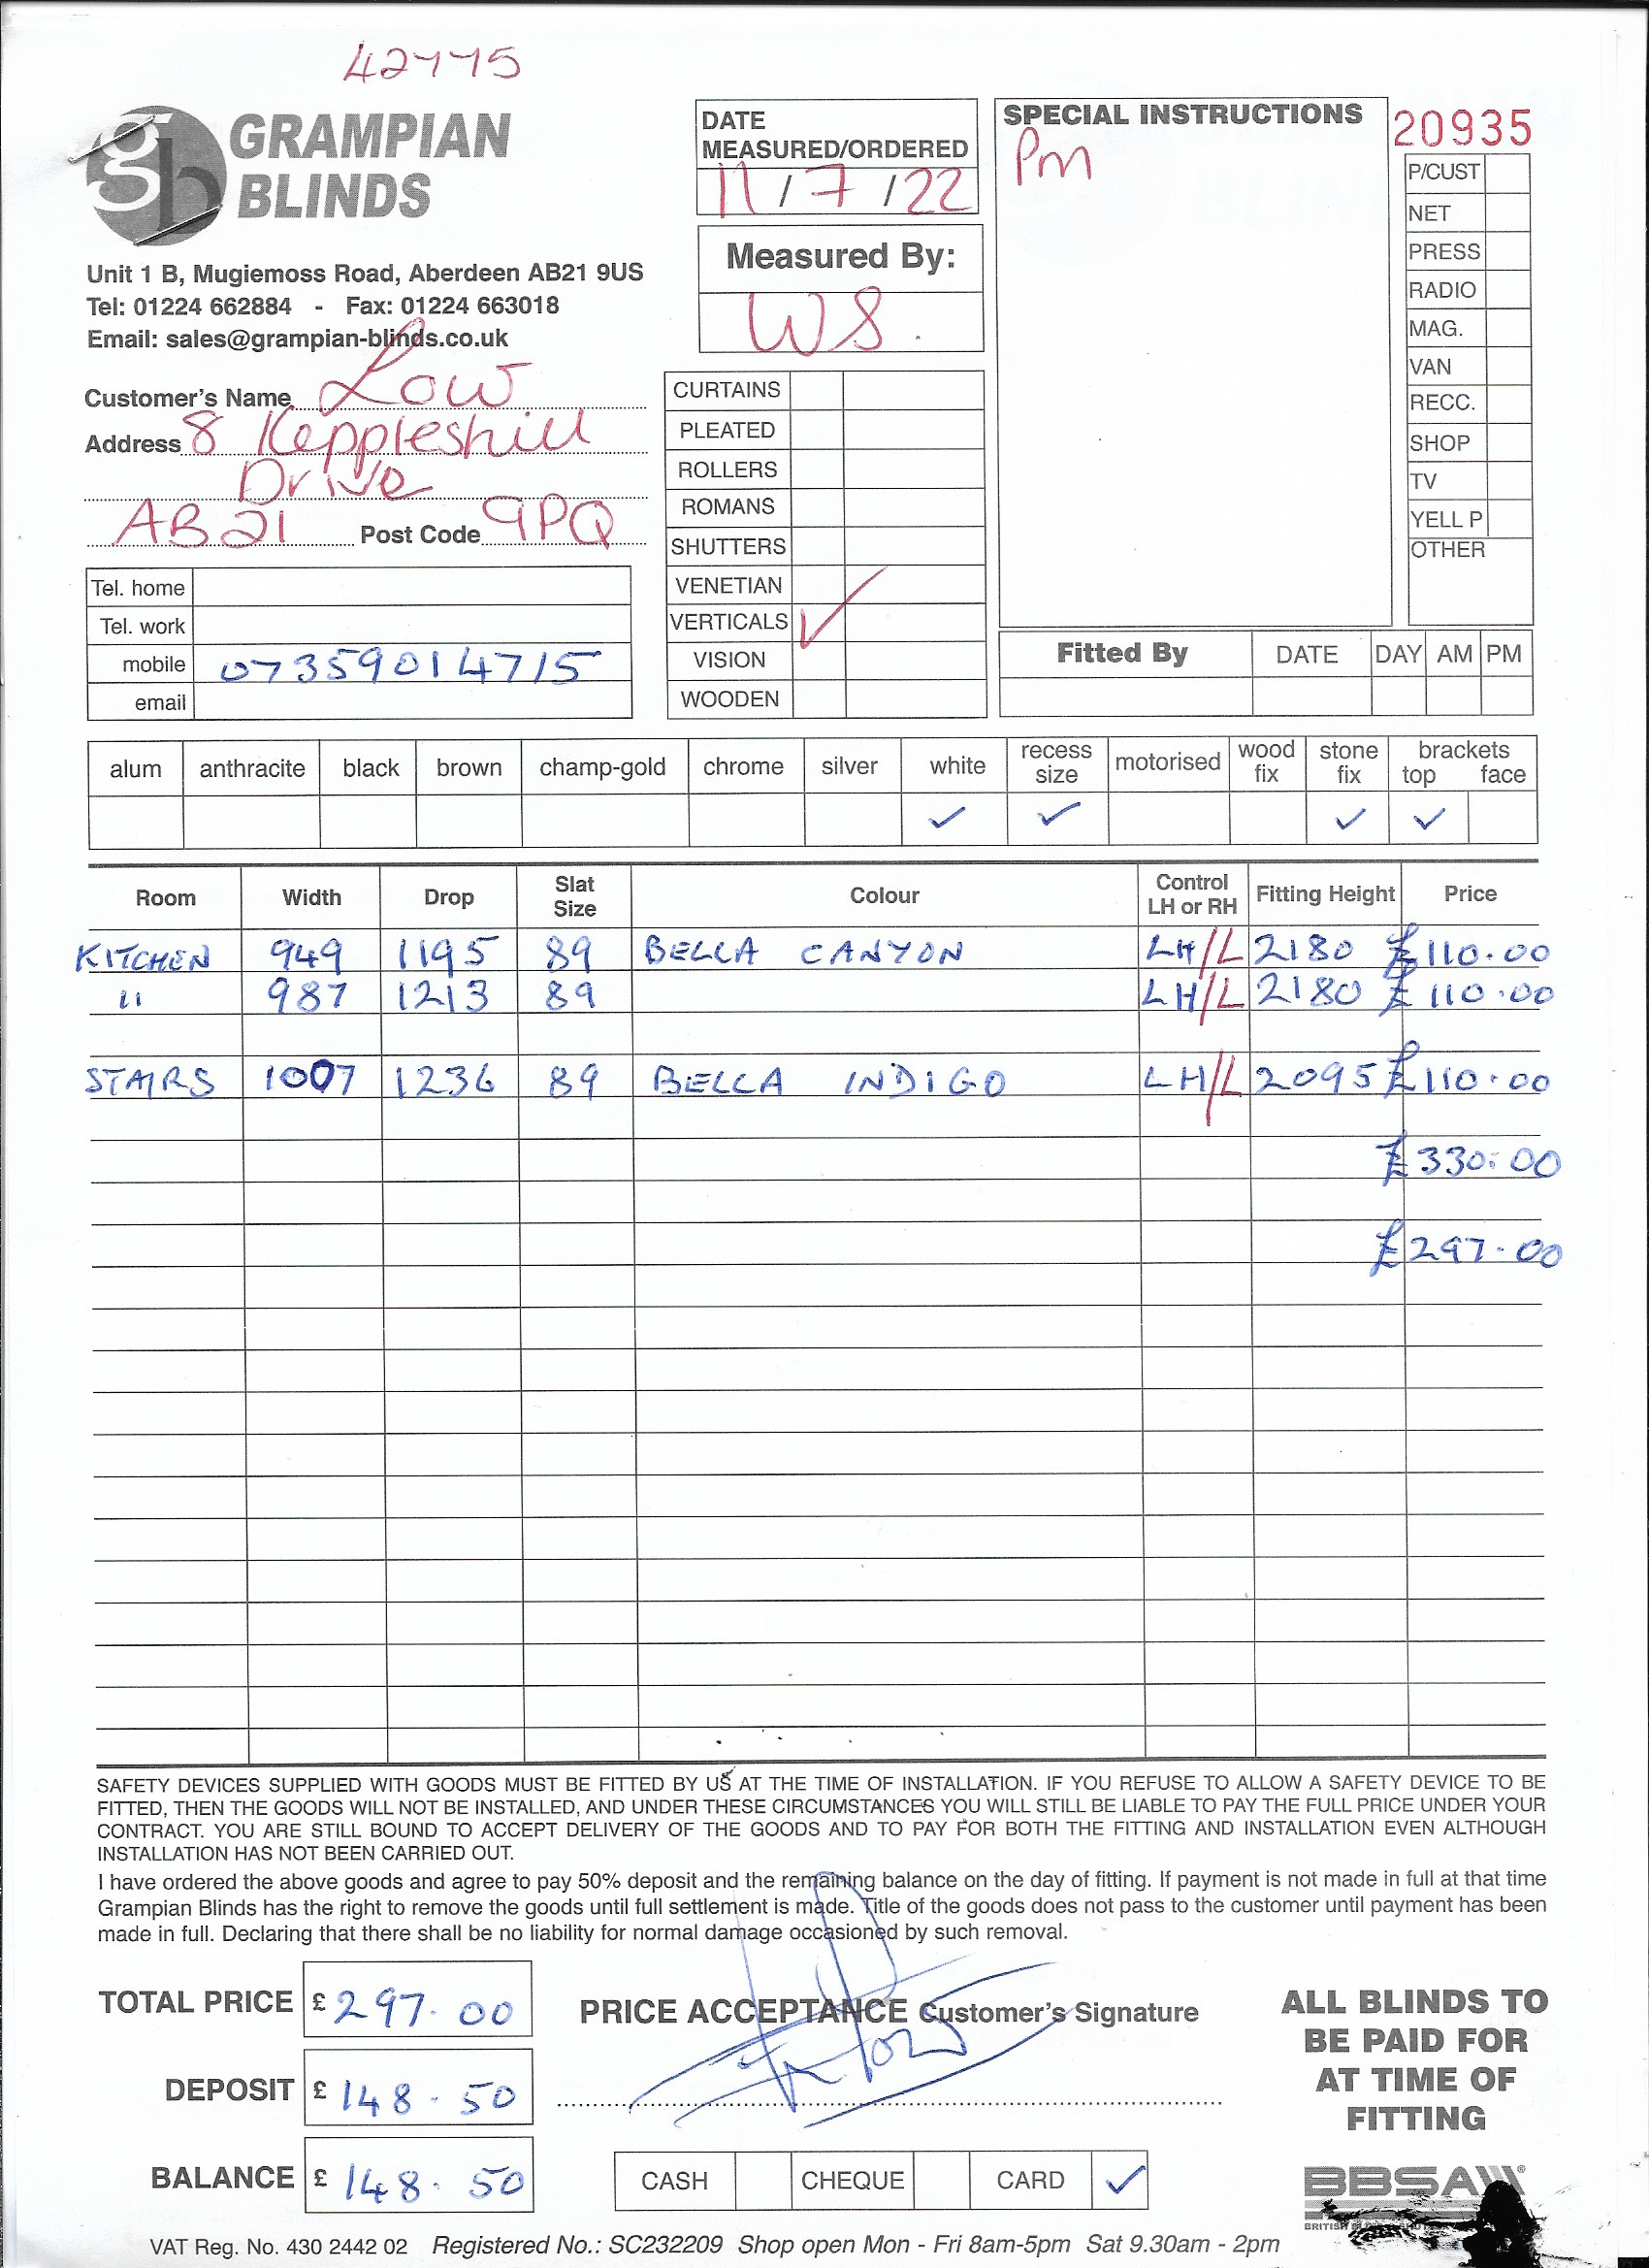 42775
GRAMPIAN
BLINDS
Unit 1 B, Mugiemoss Road, Aberdeen AB21 9US
Tel: 01224 662884 - Fax: 01224 663018
Email: sales@grampian-blinds.co.uk
Customer's Name Low
Address 8 Keppleshill
Drive
AB21 Post Code 9PQ
Tel. home
Tel. work
mobile 07359014715
email
DATE
MEASURED/ORDERED
11/7/22
Measured By:
WS.
CURTAINS
PLEATED
ROLLERS
ROMANS
SHUTTERS
VENETIAN
VERTICALS ✓
VISION
WOODEN
SPECIAL INSTRUCTIONS
Pm
20935
P/CUST
NET
PRESS
RADIO
MAG.
VAN
RECC.
SHOP
TV
YELL P
OTHER
Fitted By DATE DAY AM PM
alum anthracite black brown champ-gold chrome silver white recess size motorised wood fix stone fix brackets top face
✓ ✓ ✓ ✓
Room Width Drop Slat Size Colour Control LH or RH Fitting Height Price
KITCHEN 949 1195 89 BELLA CANYON LH/L 2180 £110.00
" 987 1213 89 LH/L 2180 £110.00
STAIRS 1007 1236 89 BELLA INDIGO LH/L 2095 £110.00
£330.00
£297.00
SAFETY DEVICES SUPPLIED WITH GOODS MUST BE FITTED BY US AT THE TIME OF INSTALLATION. IF YOU REFUSE TO ALLOW A SAFETY DEVICE TO BE
FITTED, THEN THE GOODS WILL NOT BE INSTALLED, AND UNDER THESE CIRCUMSTANCES YOU WILL STILL BE LIABLE TO PAY THE FULL PRICE UNDER YOUR
CONTRACT. YOU ARE STILL BOUND TO ACCEPT DELIVERY OF THE GOODS AND TO PAY FOR BOTH THE FITTING AND INSTALLATION EVEN ALTHOUGH
INSTALLATION HAS NOT BEEN CARRIED OUT.
I have ordered the above goods and agree to pay 50% deposit and the remaining balance on the day of fitting. If payment is not made in full at that time
Grampian Blinds has the right to remove the goods until full settlement is made. Title of the goods does not pass to the customer until payment has been
made in full. Declaring that there shall be no liability for normal damage occasioned by such removal.
TOTAL PRICE £ 297.00
DEPOSIT £ 148.50
BALANCE £ 148.50
PRICE ACCEPTANCE Customer's Signature
CASH CHEQUE CARD ✓
ALL BLINDS TO
BE PAID FOR
AT TIME OF
FITTING
BBSA
VAT Reg. No. 430 2442 02 Registered No.: SC232209 Shop open Mon - Fri 8am-5pm Sat 9.30am - 2pm